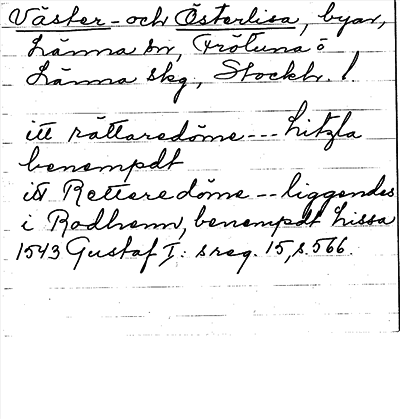 Väster- och Österlisa, byar,
Länna sn, Frötuna o
Länna skg, Stockh. l.
itt rättaredöme --- Litzla
benempdt
itt Retteredöme -- liggendes
i Rodhenn, benempdt Lissa
1543 Gustaf I: s reg. 15, s. 566.